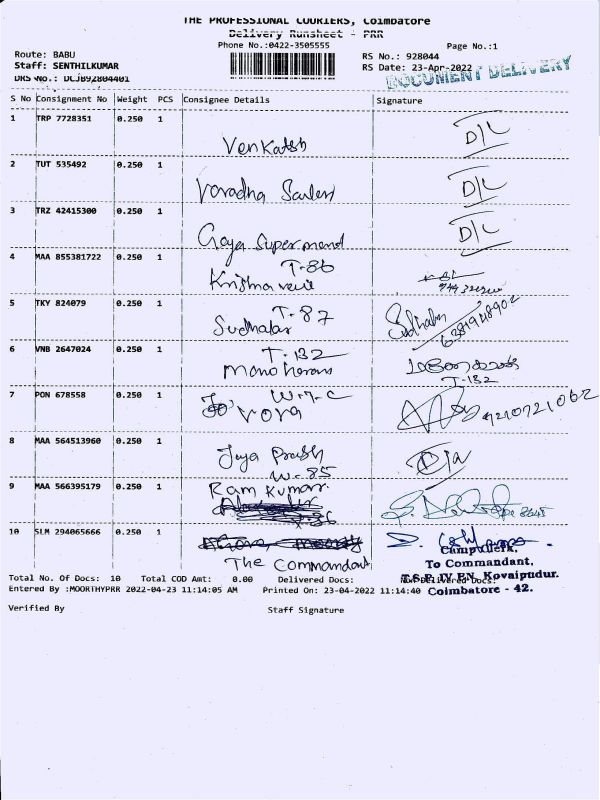 THE PROFESSIONAL COURIERS, Coimbatore
Delivery Runsheet - PRR
Phone No.:0422-3505555
Page No.:1
Route: BABU
RS No.: 928044
Staff: SENTHILKUMAR
RS Date: 23-Apr-2022
DRS No.: DCJB92804401
DOCUMENT DELIVERY
S No Consignment No Weight PCS Consignee Details Signature
1 TRP 7728351 0.250 1
Venkatesh D/L
2 TUT 535492 0.250 1
Varadha D/L
3 TRZ 42415300 0.250 1
Gaya Super D/L
4 MAA 855381722 0.250 1
T-86
Krishna veni
5 TKY 824079 0.250 1
T-87
Sudhakar
6381948902
6 VNB 2647024 0.250 1
T-132
Manoharan
T-132
7 PON 678558 0.250 1
W-7-C
Vora 9210721062
8 MAA 564513960 0.250 1
Jaya
W-85
9 MAA 566395179 0.250 1
Ram Kumar
10 SLM 294065666 0.250 1
The Commandant
To Commandant,
T.S.P. IV BN, Kovaipudur.
Coimbatore - 42.
Total No. Of Docs: 10 Total COD Amt: 0.00 Delivered Docs:
Entered By :MOORTHYPRR 2022-04-23 11:14:05 AM Printed On: 23-04-2022 11:14:40
Verified By Staff Signature